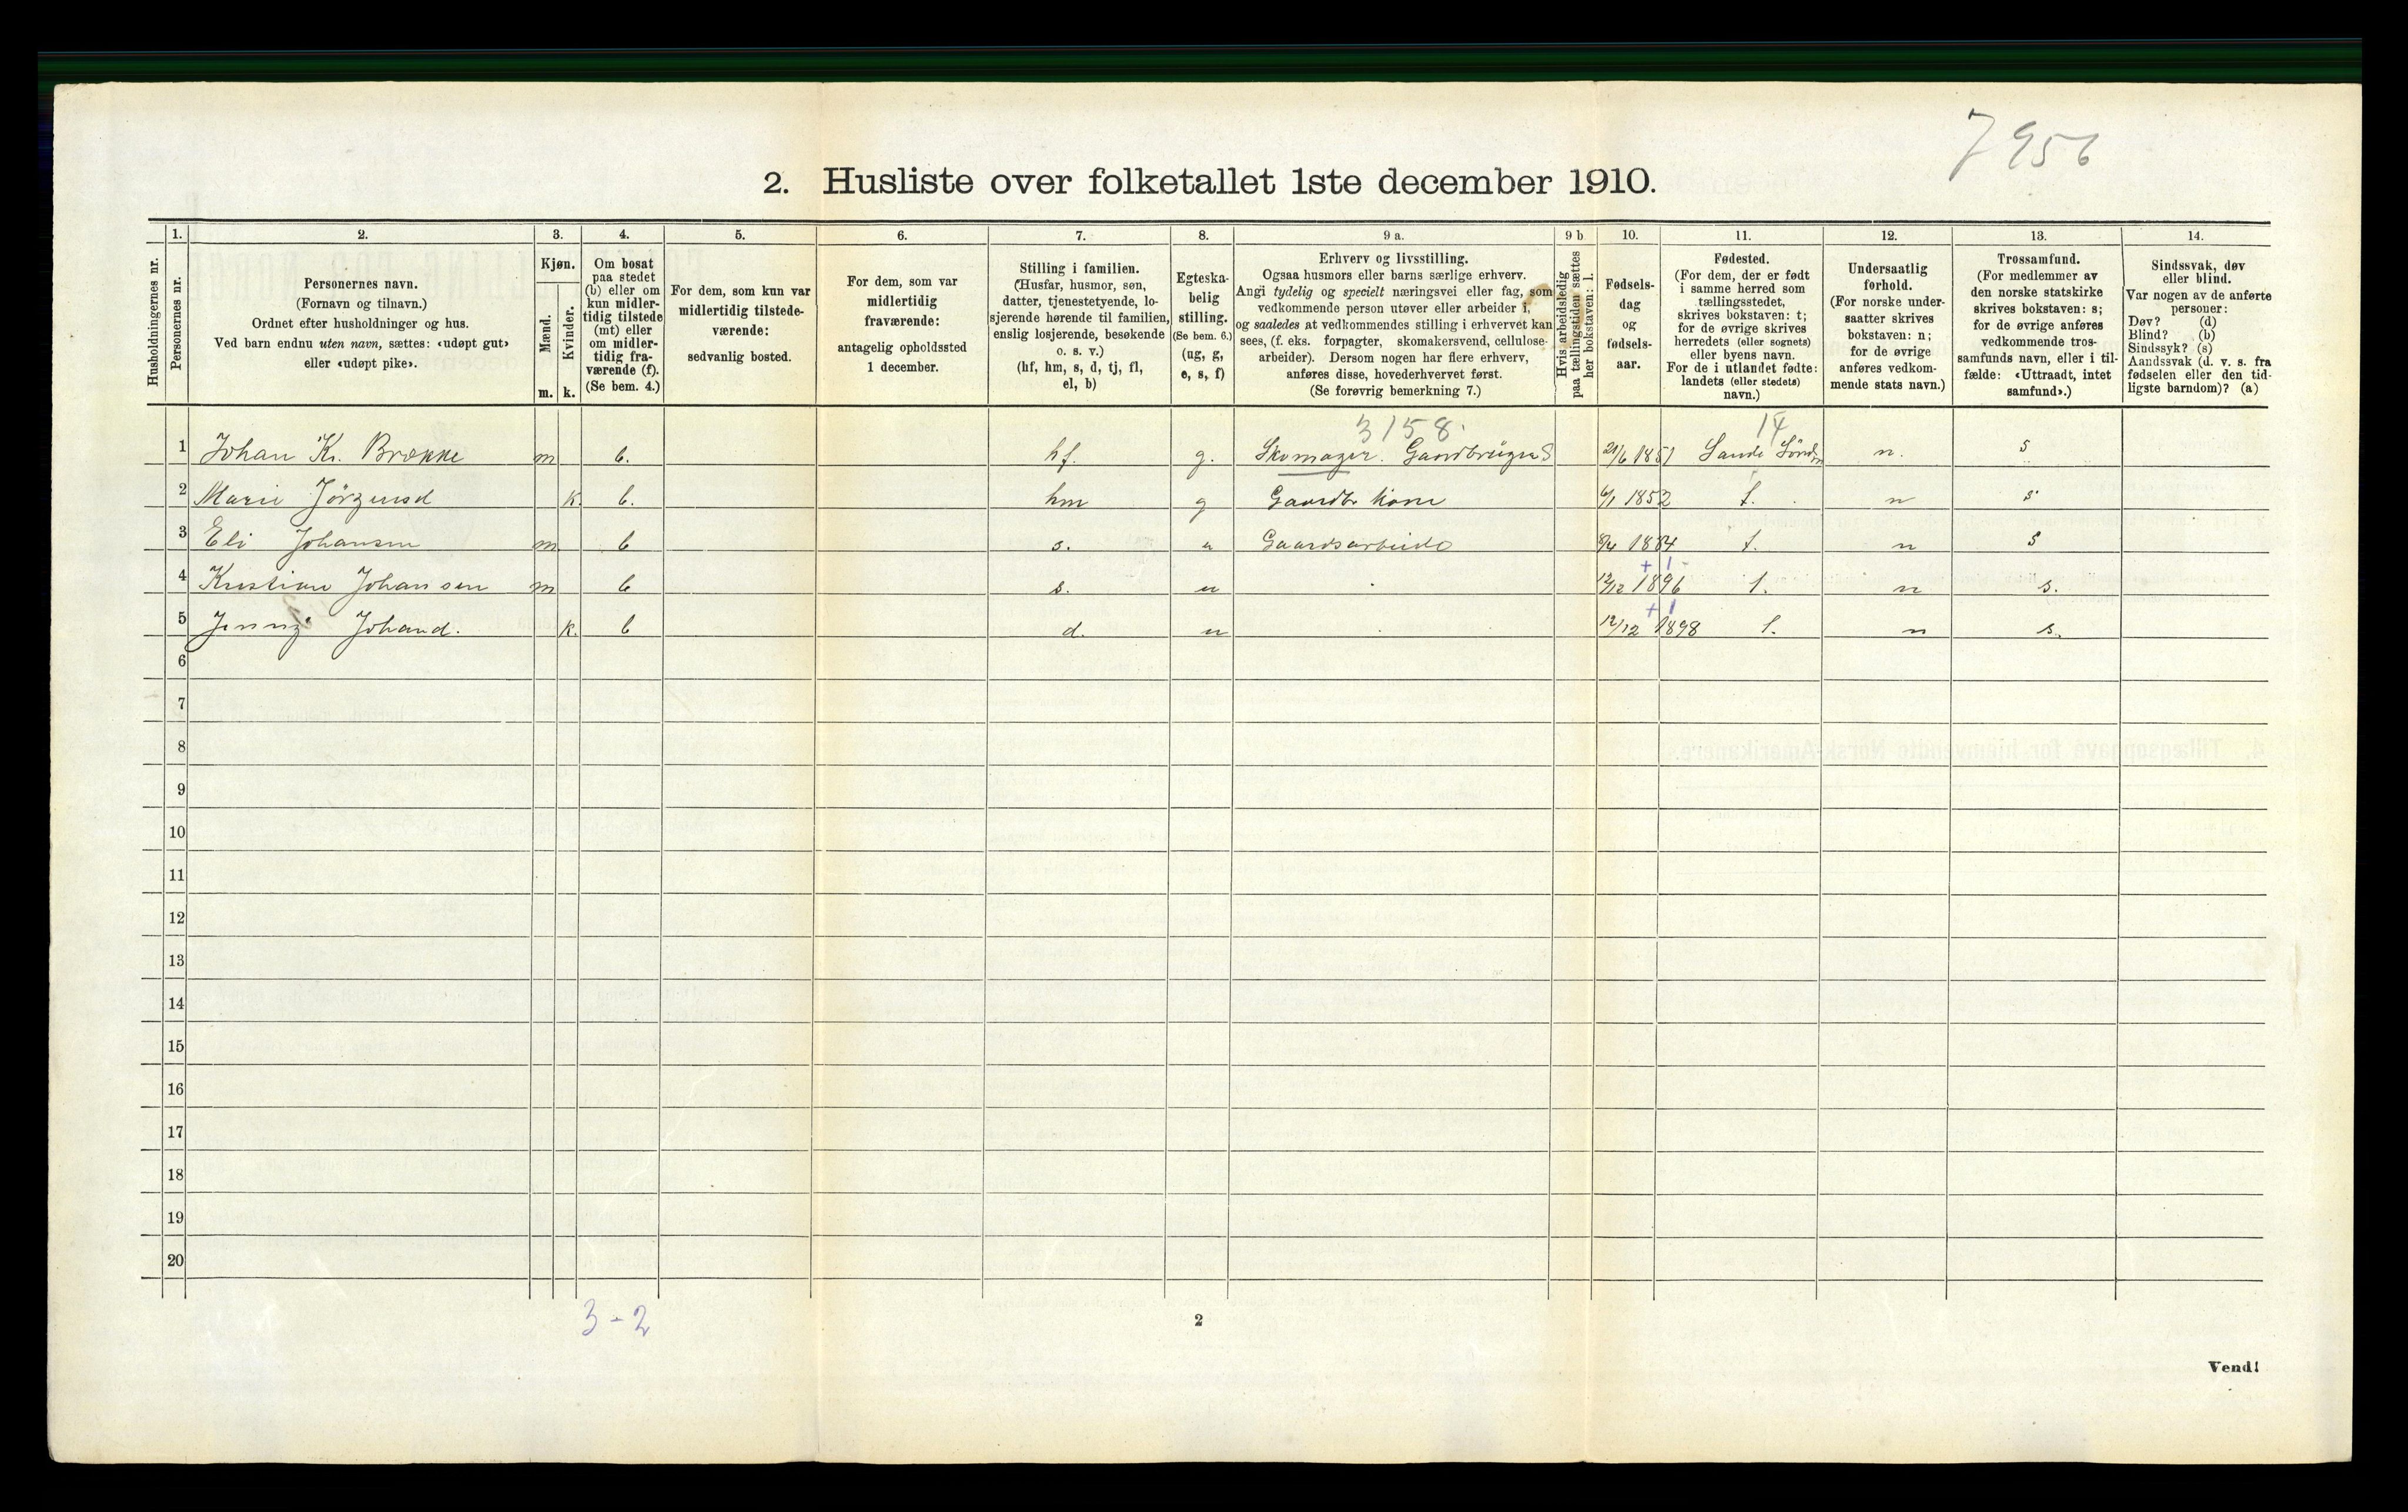 7956
2. Husliste over folketallet 1ste december 1910.
Husholdningernes nr.
1.
Personernes nr.
2.
Personernes navn.
(Fornavn og tilnavn.)
Ordnet efter husholdninger og hus.
Ved barn endnu uten navn, sættes: «udøpt gut»
eller «udøpt pike».
3.
Kjøn.
Mænd.
Kvinder.
m. k.
4.
Om bosat
paa stedet
(b) eller om
kun midler-
tidig tilstede
(mt) eller
om midler-
tidig fra-
værende (f).
(Se bem. 4.)
5.
For dem, som kun var
midlertidig tilstede-
værende:
sedvanlig bosted.
6.
For dem, som var
midlertidig
fraværende:
antagelig opholdssted
1 december.
7.
Stilling i familien.
(Husfar, husmor, søn,
datter, tjenestetyende, lo-
sjerende hørende til familien,
enslig losjerende, besøkende
o. s. v.)
(hf, hm, s, d, tj, fl,
el, b)
8.
Egteska-
belig
stilling.
(Se bem. 6.)
(ug, g,
e, s, f)
9 a.
Erhverv og livsstilling.
Ogsaa husmors eller barns særlige erhverv.
Angi tydelig og specielt næringsvei eller fag, som
vedkommende person utøver eller arbeider i,
og saaledes at vedkommendes stilling i erhvervet kan
sees, (f. eks. forpagter, skomakersvend, cellulose-
arbeider). Dersom nogen har flere erhverv,
anføres disse, hovederhvervet først.
(Se forøvrig bemerkning 7.)
9 b
Hvis arbeidsledig
paa tællingstiden sættes
her bokstaven: l.
10.
Fødsels-
dag
og
fødsels-
aar.
11.
Fødested.
(For dem, der er født
i samme herred som
tællingsstedet,
skrives bokstaven: t;
for de øvrige skrives
herredets (eller sognets)
eller byens navn.
For de i utlandet fødte:
landets (eller stedets)
navn.)
12.
Undersaatlig
forhold.
(For norske under-
saatter skrives
bokstaven: n;
for de øvrige
anføres vedkom-
mende stats navn.)
13.
Trossamfund.
(For medlemmer av
den norske statskirke
skrives bokstaven: s;
for de øvrige anføres
vedkommende tros-
samfunds navn, eller i til-
fælde: «Uttraadt, intet
samfund».)
14.
Sindssvak, døv
eller blind.
Var nogen av de anførte
personer:
Døv? (d)
Blind? (b)
Sindssyk? (s)
Aandssvak (d. v. s. fra
fødselen eller den tid-
ligste barndom)? (a)
3158 14
1 Johan Kr. Brække m b. hf. g. Skomager. Gaardbruger S 21/6 1851 Sande Söndm n. s
2 Marie Jörgensd k. b. hm g Gaardbr kone 6/1 1852 t. n s
3 Eli Johansen m b s. u Gaardsarbeide 1884 t. n s
+ 1
4 Kristian Johansen m b s. u 13/12 1896 t. n s.
+ 1
5 Jenny Johand. k. b d. u 12/12 1898 t. n s.
6
7
8
9
10
11
12
13
14
15
16
17
18
19
20
3-2
2
Vend!